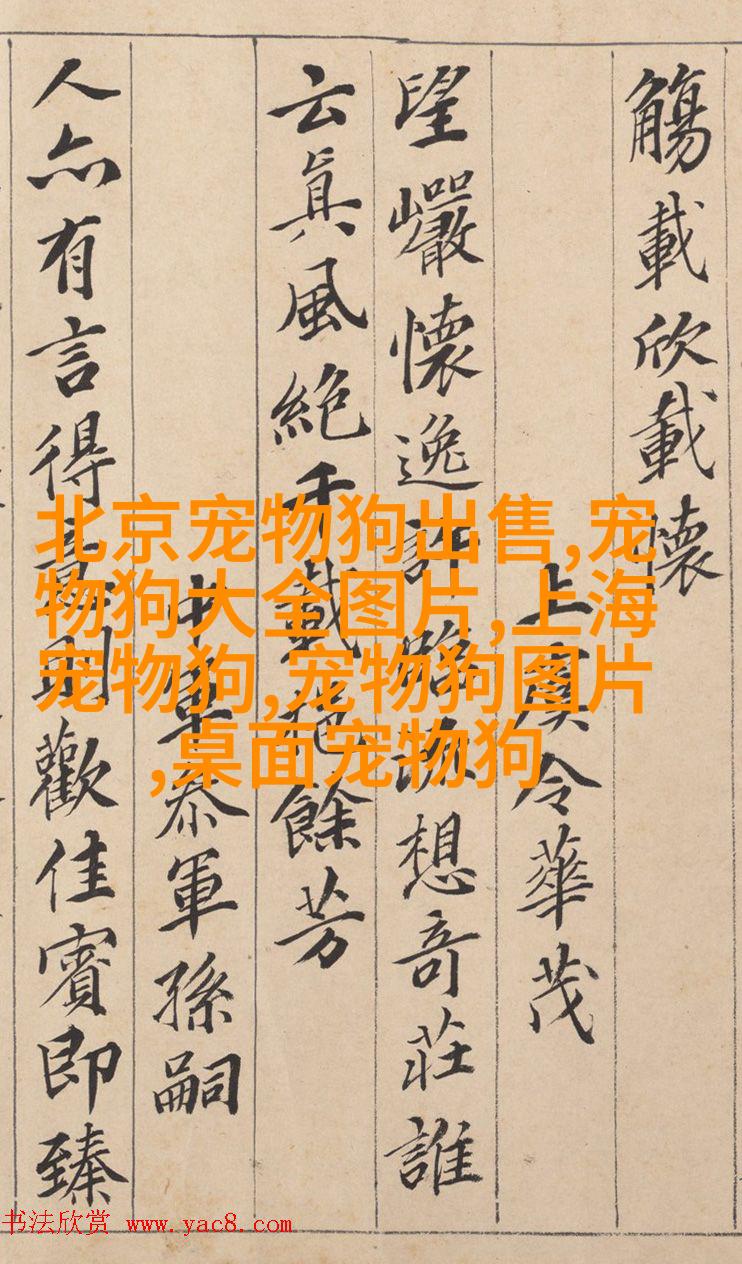 觴載欣載懷
上虞令華茂
望巖懷逸許臨流想奇莊誰
云眞風絶千載挹餘芳
中軍叅軍孫嗣
人亦有言得意則歡佳賓即臻
北京宠物狗出售,宠
物狗大全图片,上海
宠物狗,宠物狗图片
,桌面宠物狗
书法欣赏 www.yac8.com